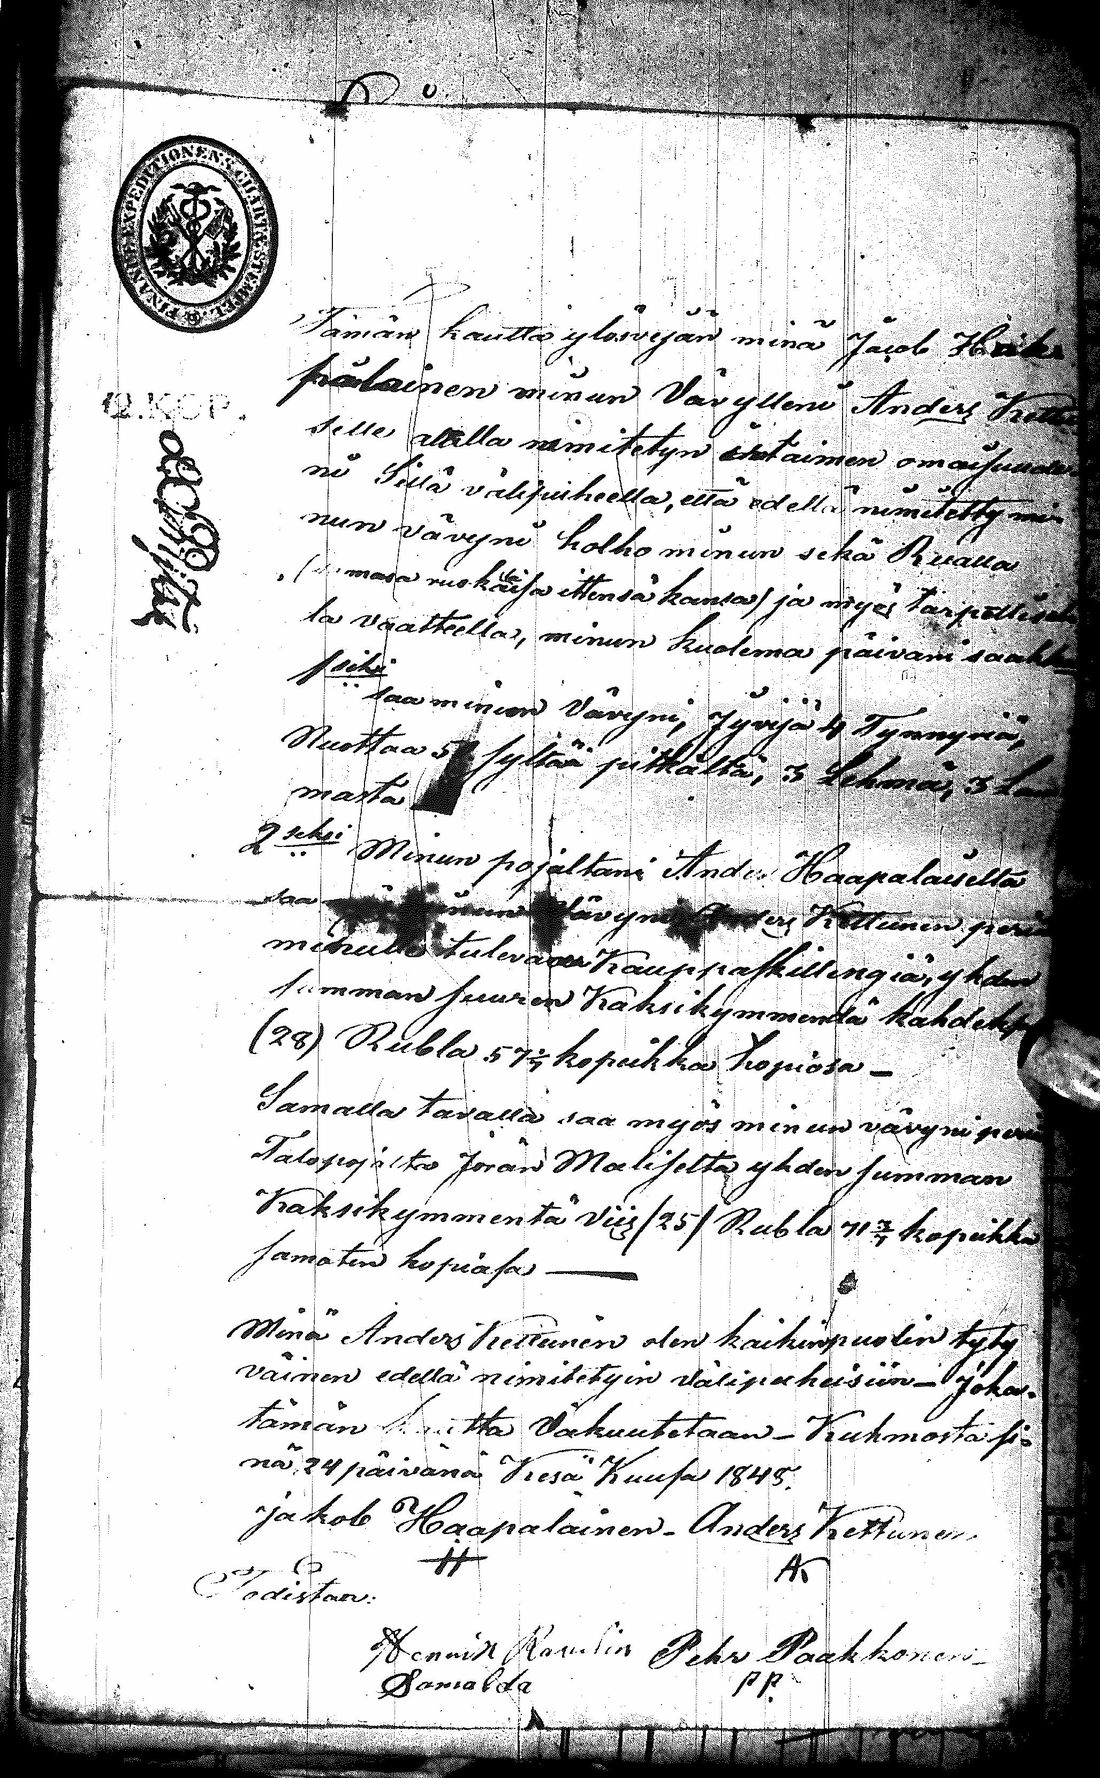 FINANCE EXPEDITIONENS CHARTÆ STEMPEL
12. KOP.
Tämän kautta ylösvejän minä Jacob Haa
palainen minun Vävylleni Anders Kettu
selle alla nimitetyn irtaimen omaisuude
ni Sillä välipuheella, että edellä nimitetty mi-
nun vävyni holho minun sekä Rualla
masa ruokaisa ittensä kansa) ja myös tarpellisel
la vaatteella, minun kuolema päivani saakka
1 seksi
saa minun Vävyni, Jyvijä 4 Tynnyriä,
Nuottaa 5 syltää pitkältä, 3 Lehmä, 3 Lam
masta
2 seksi Minun pojaltani Anders Haapalaiselta
saa minun Vävyni Anders Kettunen periä
minulle tulevaa Kauppaskillingiä, yhden
summan suuren Kaksikymmendä kahdeksa
(28) Rubla 57 1/7 kopeikka hopiosa -
Samalla tavalla saa myös minun vävyni periä
Talopojalta Jöran Maliselta yhden summan
Kaksikymmentä Viis (25) Rubla 71 3/7 kopeikka
samaten hopiasa —
Minä Anders Kettunen olen kaikinpuolin tyty
väinen edellä nimitetyin välipuheisiin - Joka
tämän kautta Vakuutetaan - Kuhmosta si-
nä 24 päivänä Kesä Kuusa 1845.
Jakob Haapalainen - Anders Kettunen
H AK
Todistaa:
Henrik Pehr Paakkonen
PP.